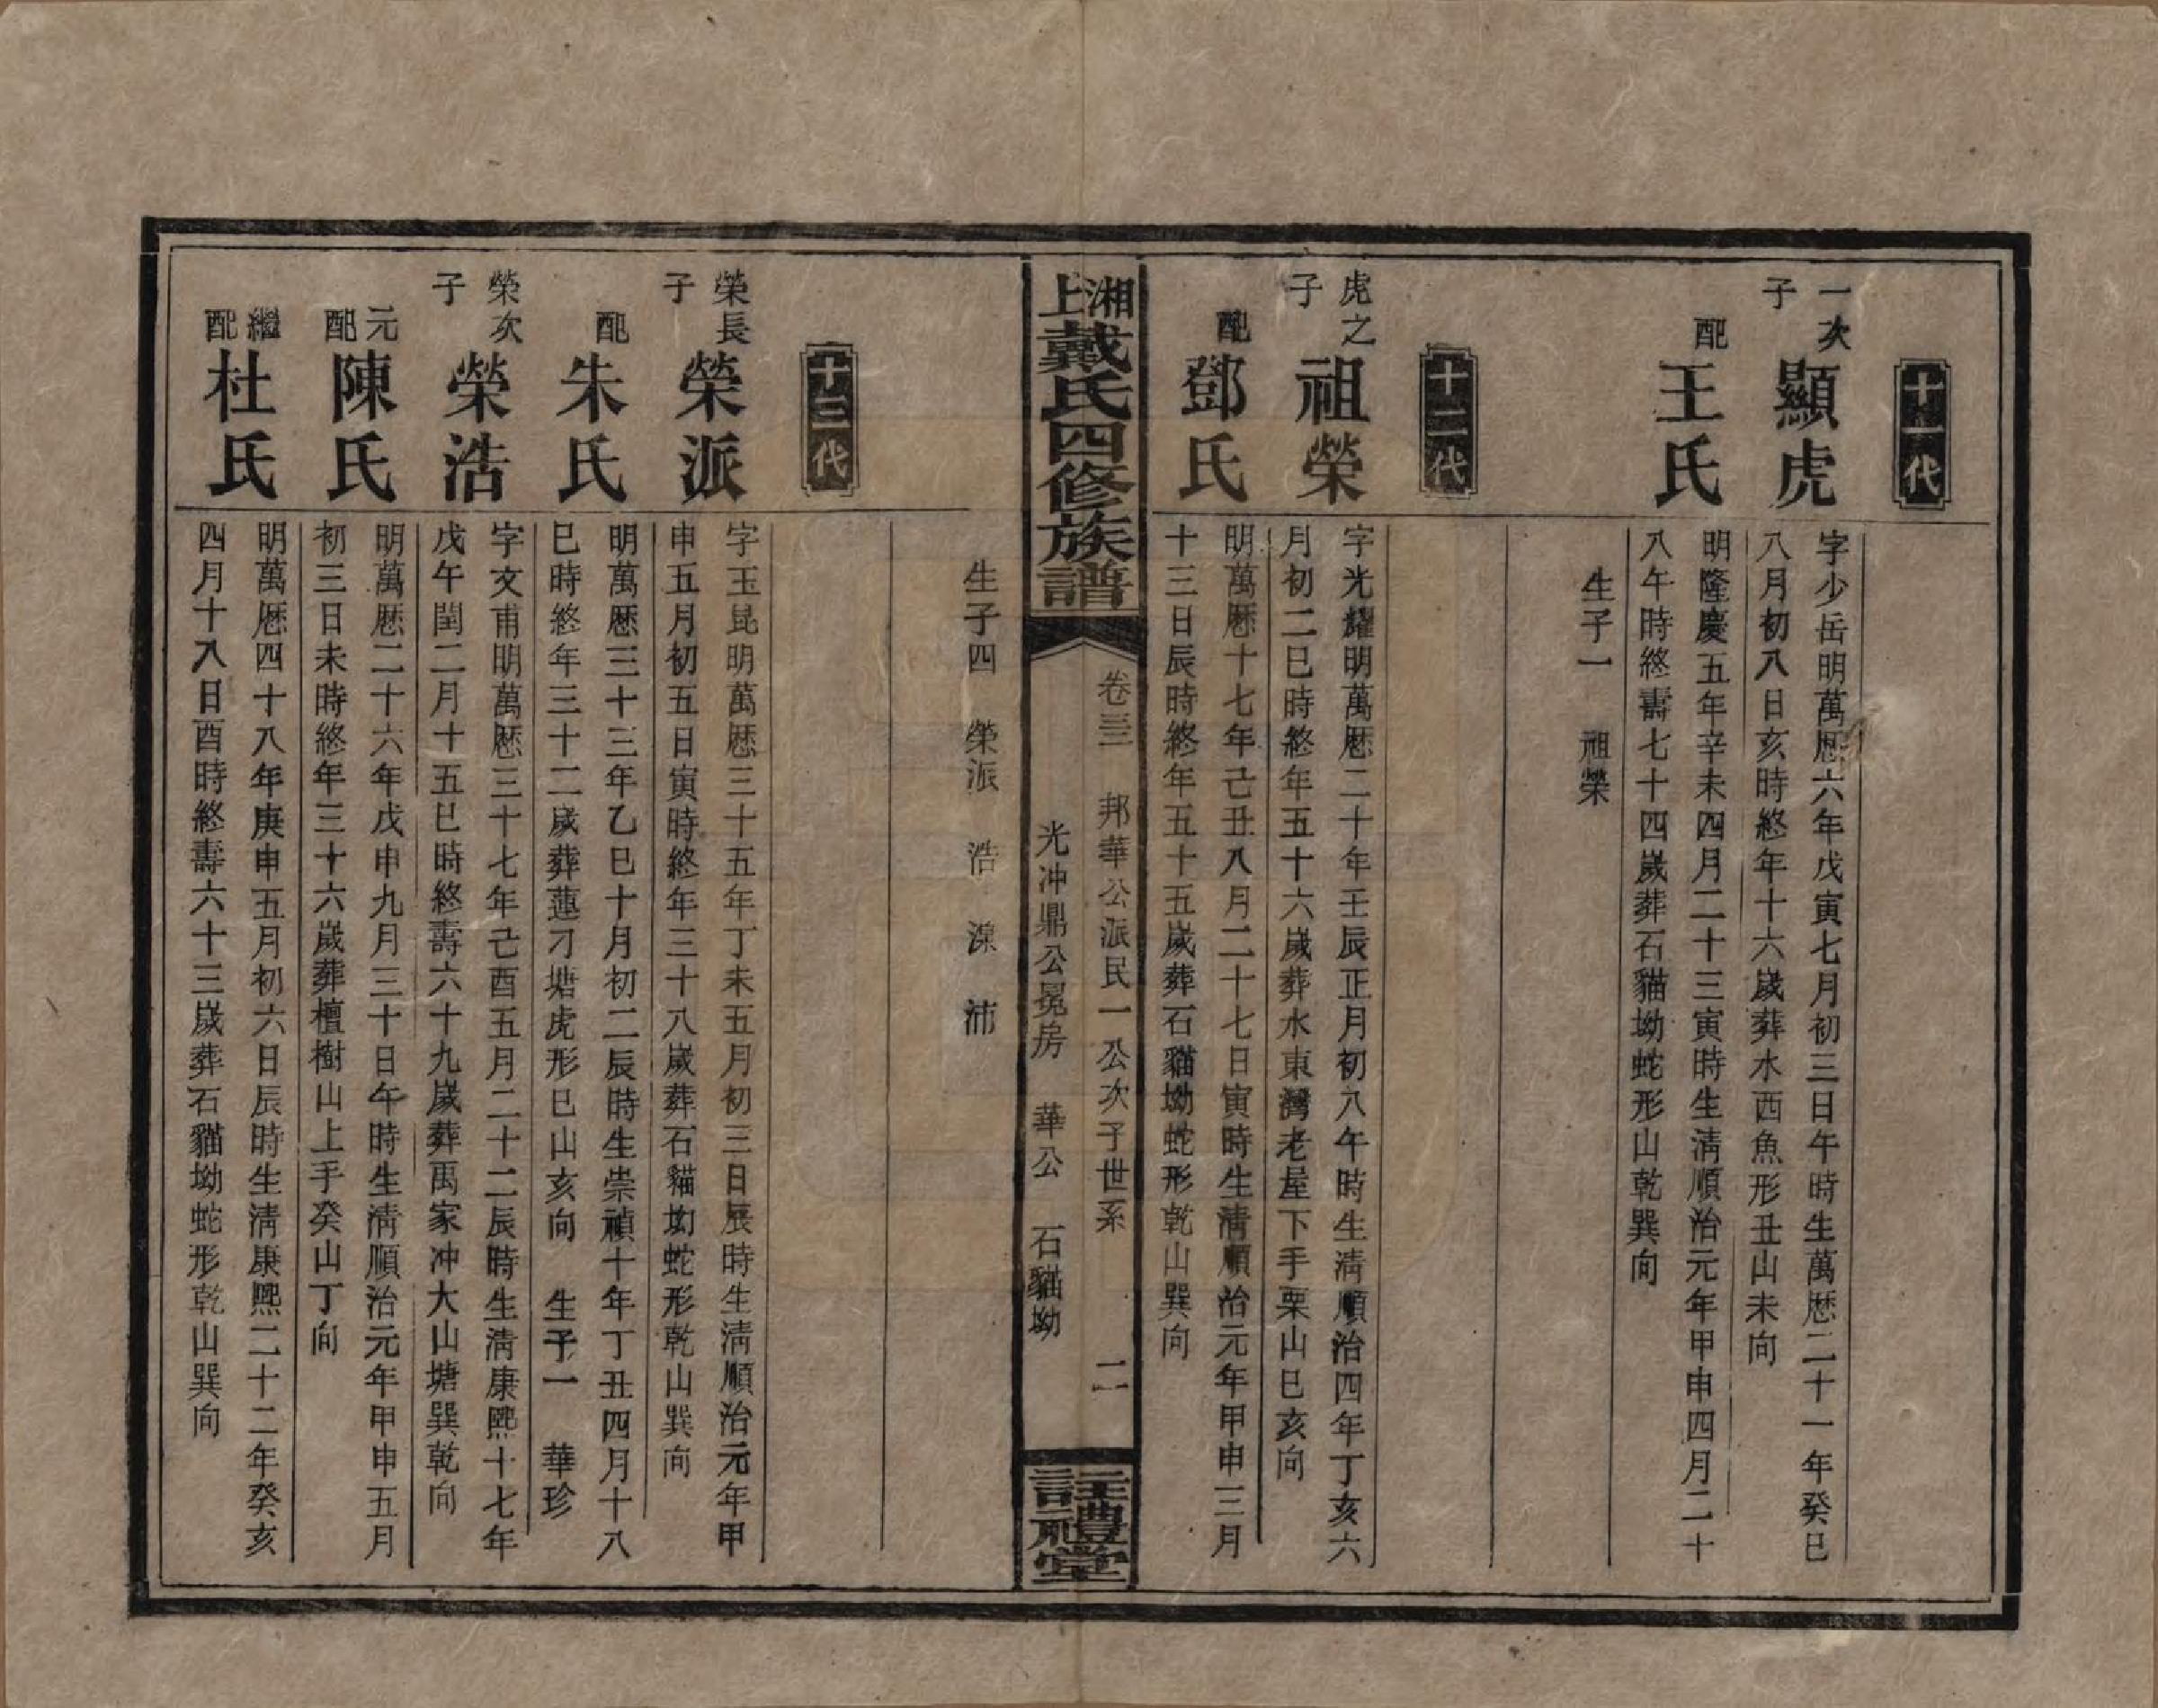 十一代
一次子
顯虎
字少岳明萬厯六年戊寅七月初三日午時生萬厯二十一年癸巳
八月初八日亥時終年十六歲葬水西魚形丑山未向
配
王氏
明隆慶五年辛未四月二十三寅時生淸順治元年甲申四月二十
八午時終壽七十四歲葬石貓坳蛇形山乾巽向
生子一 祖榮
十二代
虎之子
祖榮
字光耀明萬厯二十年壬辰正月初八午時生淸順治四年丁亥六
月初二巳時終年五十六歲葬水東灣老屋下手栗山巳亥向
配
鄧氏
明萬厯十七年己丑八月二十七日寅時生淸順治元年甲申三月
十三日辰時終年五十五歲葬石貓坳蛇形乾山巽向
湘上戴氏四修族譜
卷三 邦華公派民一公次子世系 二
光冲鼎公冕房 華公 石貓坳
註禮堂
生子四 榮派 浩 濚 沛
十三代
榮長子
榮派
字玉昆明萬厯三十五年丁未五月初三日辰時生淸順治元年甲
申五月初五日寅時終年三十八歲葬石貓坳蛇形乾山巽向
配
朱氏
明萬厯三十三年乙巳十月初二辰時生崇禎十年丁丑四月十八
巳時終年三十二歲葬蓮刁塘虎形巳山亥向 生子一 華珍
榮次子
榮浩
字文甫明萬厯三十七年己酉五月二十二辰時生淸康熙十七年
戊午閏二月十五巳時終壽六十九歲葬禹家冲大山塘巽乾向
元配
陳氏
明萬厯二十六年戊申九月三十日午時生淸順治元年甲申五月
初三日未時終年三十六歲葬檀樹山上手癸山丁向
繼配
杜氏
明萬厯四十八年庚申五月初六日辰時生淸康熙二十二年癸亥
四月十八日酉時終壽六十三歲葬石貓坳蛇形乾山巽向